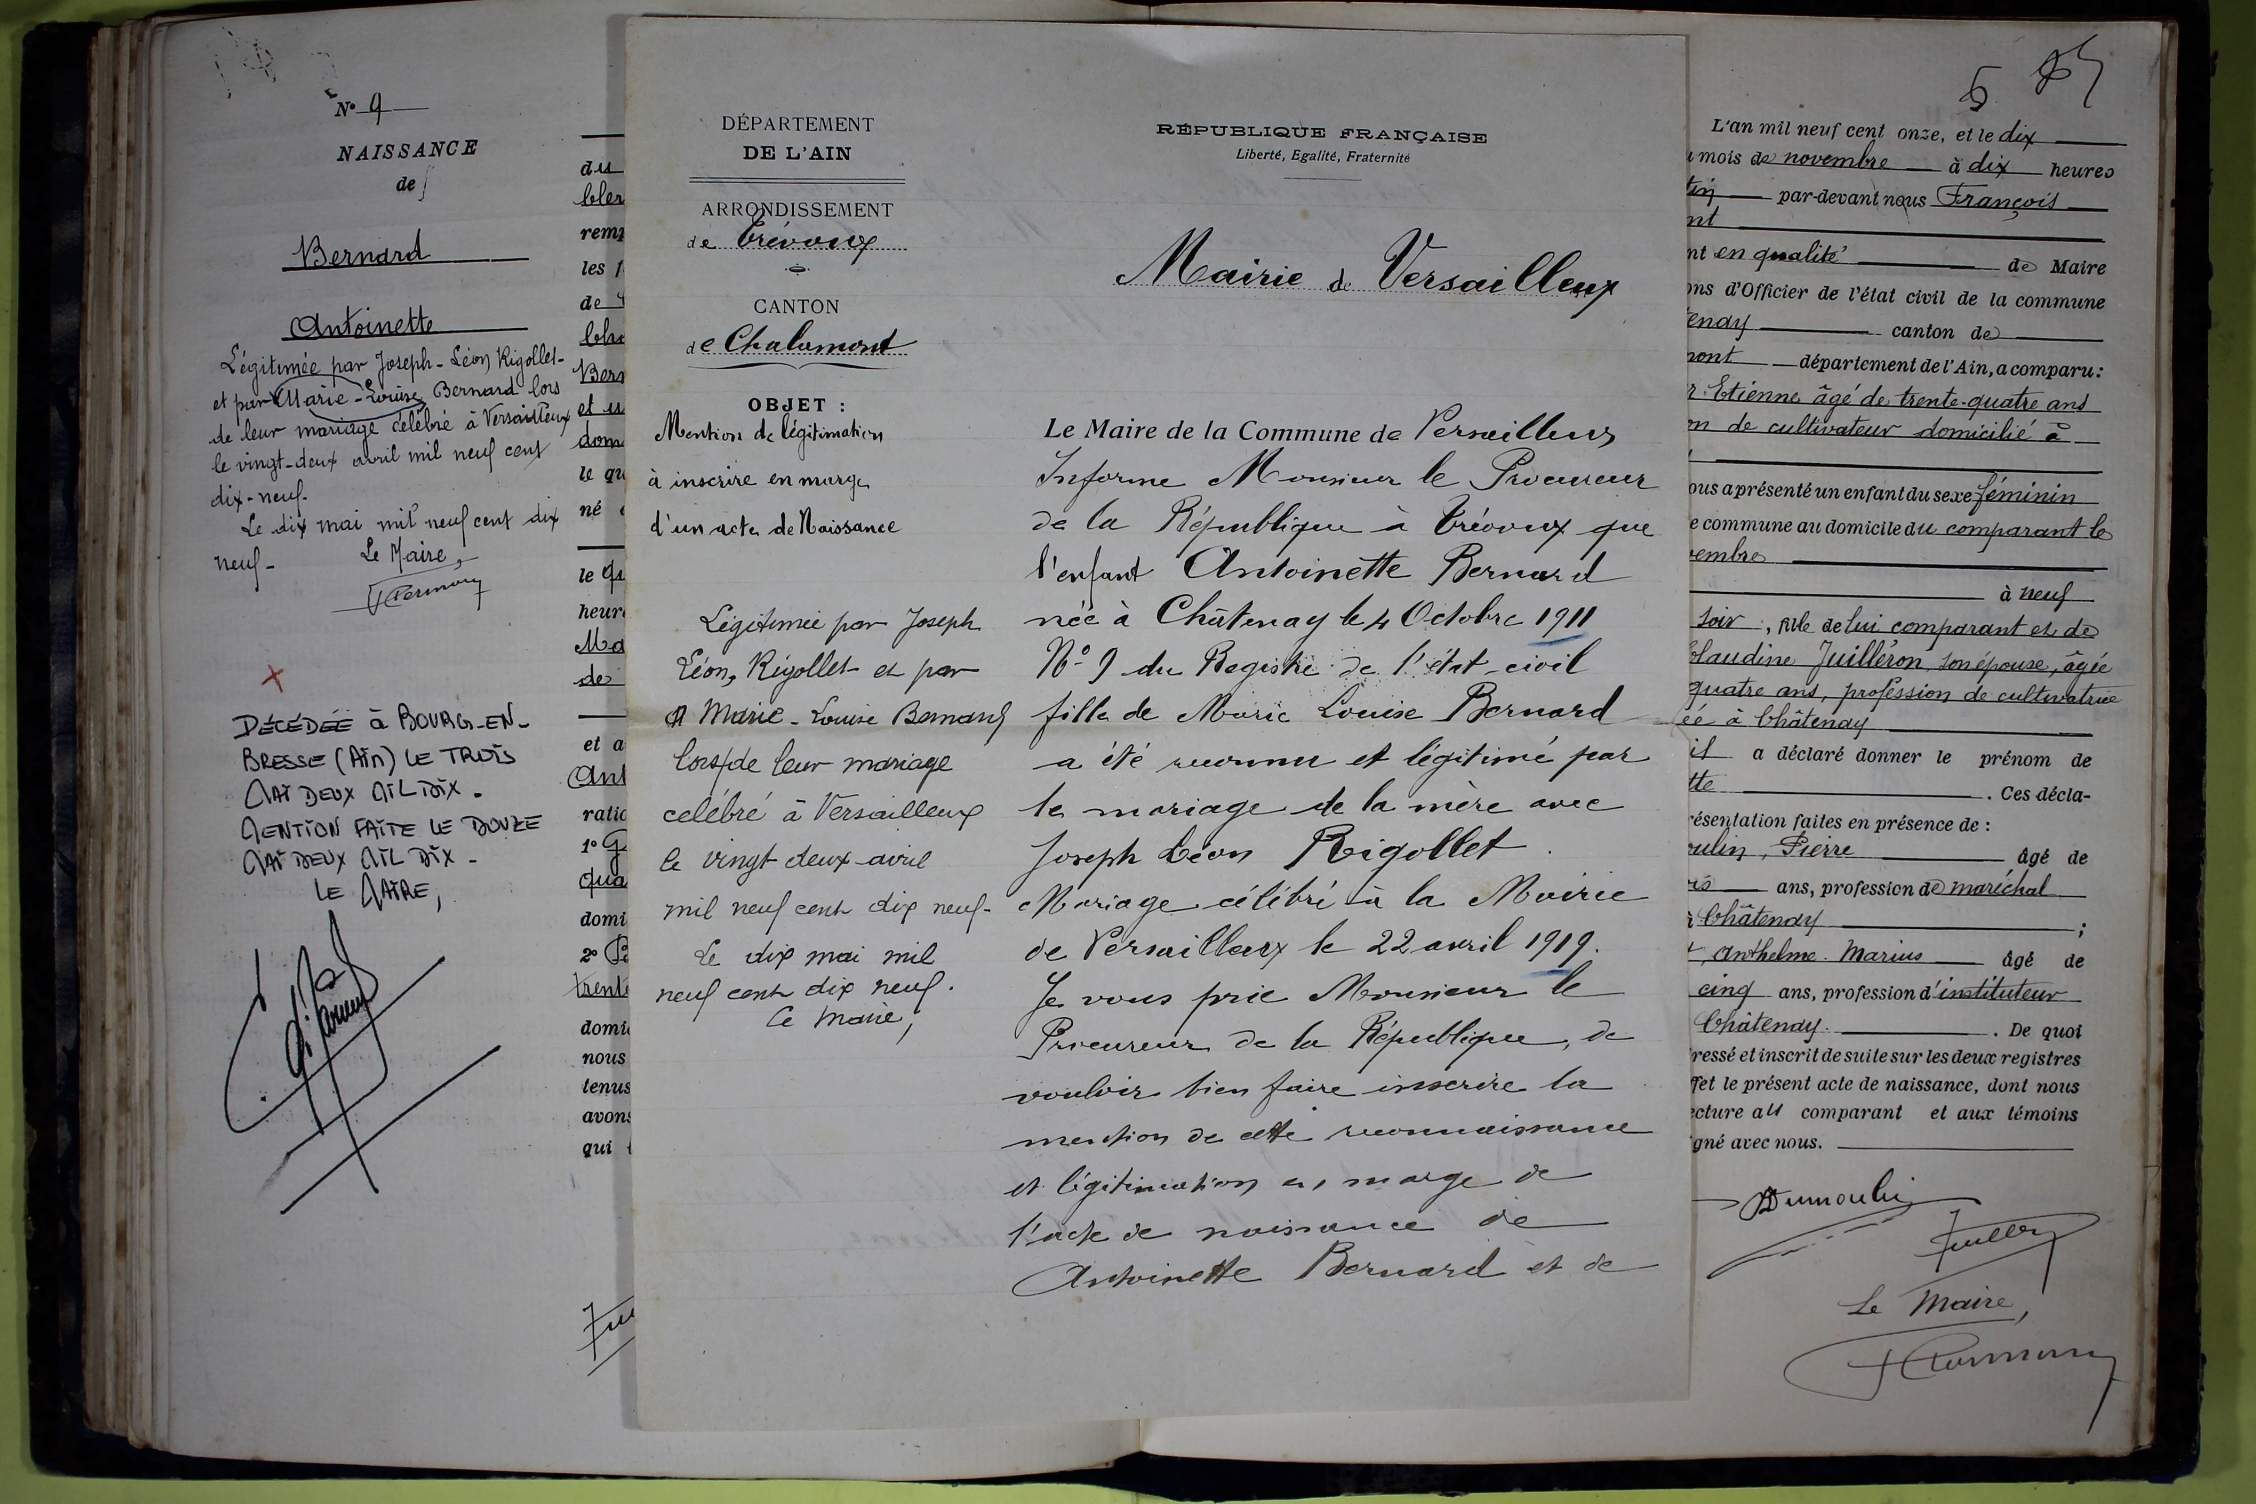 N° 9
NAISSANCE
de
Bernard
Antoinette
Légitimée par Joseph-Léon Rigollet
et par Marie-Louise Bernard lors
de leur mariage célébré à Versailleux
le vingt-deux avril mil neuf cent
dix-neuf.
Le dix mai mil neuf cent dix
neuf-
Le Maire,
DÉCÉDÉE à BOURG-EN-
BRESSE (Ain) LE TROIS
MAI DEUX MIL DIX.
MENTION FAITE LE DOUZE
MAI DEUX MIL DIX.
LE MAIRE,
du
bler
remp
les f
de
Bern
et
dom
le qu
né
le
heure
Ma
de
et a
Ant
ratio
1° G
qua
domi
2°
trent
domi
nous
tenus
avons
qui
DÉPARTEMENT
DE L'AIN
ARRONDISSEMENT
de Trévoux
CANTON
de Chalamont
OBJET :
Mention de légitimation
à inscrire en marge
d'un acte de Naissance
Légitimée par Joseph
Léon, Rigollet et par
Marie-Louise Bernard
lors de leur mariage
célébré à Versailleux
le vingt deux avril
mil neuf cent dix neuf-
Le dix mai mil
neuf cent dix neuf.
Le Maire,
RÉPUBLIQUE FRANÇAISE
Liberté, Egalité, Fraternité
Mairie de Versailleux
Le Maire de la Commune de Versailleux
Informe Monsieur le Procureur
de la République à Trévoux que
l'enfant Antoinette Bernard
née à Châtenay le 4 Octobre 1911
N° 9 du Registre de l'état civil
fille de Marie Louise Bernard
a été reconnu et légitimé par
le mariage de la mère avec
Joseph Léon Rigollet.
Mariage célébré à la Mairie
de Versailleux le 22 avril 1919.
Je vous prie Monsieur le
Procureur de la République, de
vouloir bien faire inscrire la
mention de cette reconnaissance
et légitimation en marge de
l'acte de naissance de
Antoinette Bernard et de
5
L'an mil neuf cent onze, et le dix
mois de novembre à dix heures
par-devant nous François
nt
nt en qualité de Maire
ons d'Officier de l'état civil de la commune
enay canton de
mont département de l'Ain, a comparu:
r Etienne âgé de trente-quatre ans
on de cultivateur domicilié à
ous a présenté un enfant du sexe féminin
e commune au domicile du comparant le
vembre
à neuf
soir, née de lui comparant et de
Claudine Juilléron, son épouse, âgée
quatre ans, profession de cultivatrice
ée à Châtenay
il a déclaré donner le prénom de
tte. Ces décla-
résentation faites en présence de :
oulin, Pierre âgé de
ans, profession de maréchal
à Châtenay ;
, Anthelme Marius âgé de
cinq ans, profession d'instituteur
Châtenay. De quoi
ressé et inscrit de suite sur les deux registres
fet le présent acte de naissance, dont nous
ecture au comparant et aux témoins
gné avec nous.
Dumoulin
Le Maire,